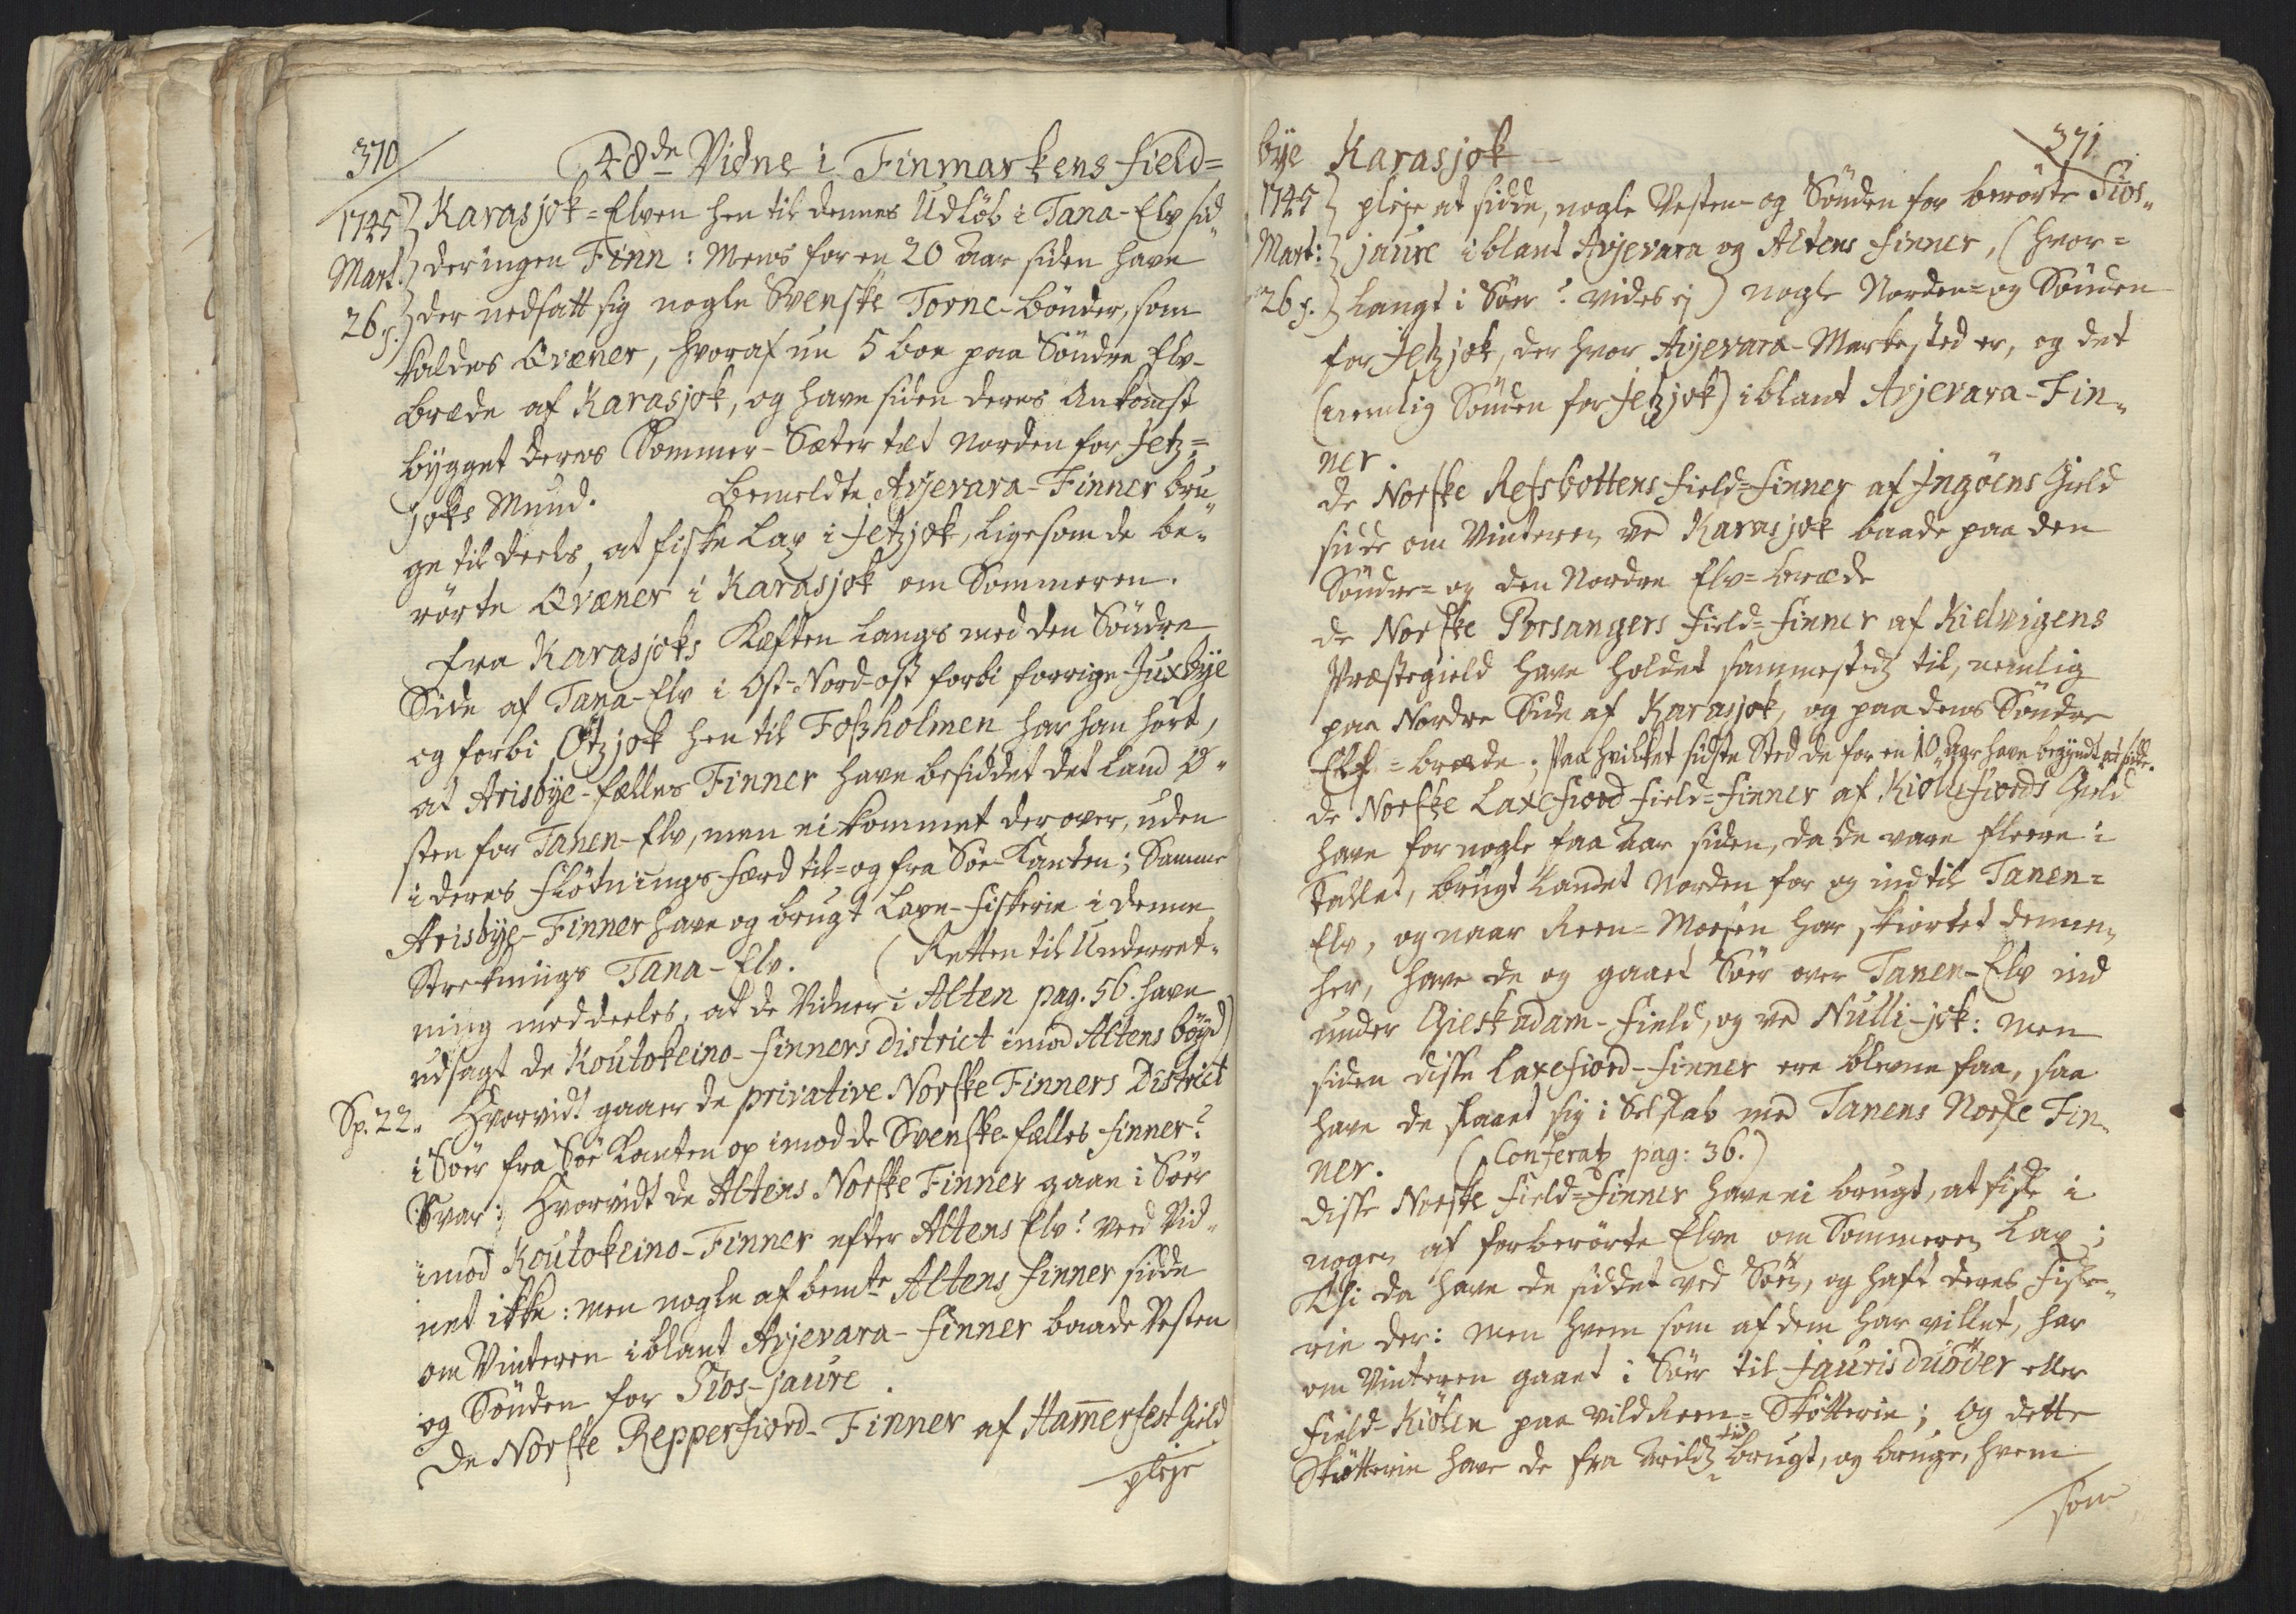 370
48de Vidne i Finmarkens Field=
1745 Karasjok=Elven hen til dennes Udløb i Tana-Elv sid„
Mart. der ingen Finn: Mens for en 20 Aar siden have
26 s. der nedsatt sig nogle Svenske Torne-bönder, som
kaldes Qvæner, hvoraf nu 5 boe paa Söndre Elv-
bredde af Karasjok, og have siden deres Ankomst
bygget deres Sommer-Sæter tæt norden for Jetz=
joks Mund. Bemeldte Avjevara-Finner bru„
ge til deels, at fiske Lax i Jetzjok, ligesom de be„
rörte Qvæner i Karasjok om Sommeren.
Fra Karasjoks Kæften langs med den Söndre
Side af Tana-Elv i Ost-Nord-ost forbi forrige Juxbye
og forbi Otzjok hen til Foßholmen har han hört,
at Arisbye-fælles Finner have besiddet det Land Ø„
sten for Tanen-Elv, men ei kommet der over, uden
i deres Flötnings-færd til= og fra Söe-Kanten; Samme
Arisbye-Finner have og brugt Laxe-Fiskerie i denne
Streknings Tana-Elv. (Retten til Underret„
ning meddeeles, at de Vidner i Alten pag. 56. have
udsagt de Koutokeino-Finners District imod Altens böyd)
Sp. 22. Hvorvidt gaaer de privative Norske Finners District
i Söer fra Söe Kanten op imod de Svenske-fælles Finner?
Svar: Hvorvidt de Altens Norske Finner gaae i Söer
imod Koutokeino-Finner efter Altens Elv? veed Vid„
net ikke: men nogle af bemte Altens Finner sidde
om Vinteren iblant Avjevara-Finner baade Vesten
og Sönden for Jios-jaure.
De Norske Repperfiord-Finner af Hammerfest Gield
pleje
bye Karasjok
371
1745 pleje at sidde, nogle Vesten- og Sönden for berörte Jios„
Mart: jaure iblant Avjevara og Altens Finner, (hvor=
26 s. langt i Söer? vides ej) nogle Norden= og Sönden
for Jetzjok, der hvor Avjevara-Markested er, og det
(nemlig Sönden for Jetzjok) iblant Avjevara-Fin„
ner.
De Norske Refsbottens Field=Finner af Ingöens Gield
sidde om Vinteren ved Karasjok baade paa den
Söndre= og den Nordre Elv=bredde
De Norske Porsangers Field=Finner af Kielvigens
Præstegield have holdet sammestedz til, nemlig
paa Nordre Side af Karasjok, og paa dens Söndre
Elf=bredde; paa hvilket sidste Sted de for en 10 Aar have begyndt at sidde.
De Norske Laxefiord Field=Finner af Kiöllefiords Gield
have for nogle faa Aar siden, da de vare fleere i
Tallet, brugt Landet Norden for og ind til Tanen=
Elv, og naar Reen=Moesen har skortet dennem
her, have de og gaaet Söer over Tanen-Elv ind
under Gieskadam-Field, og ved Nulli-jok: Men
siden disse Laxefiord-Finner ere blevne faa, saa
have de slaaet sig i Selskab med Tanens Norske Fin„
ner. (Conferatz pag: 36.)
Disse Norske Field=Finner have ei brugt, at fiske i
nogen af forberörte Elve om Sommeren Lax;
Thi da have de siddet ved Söen, og haft deres Fiske„
rie der: Men hvem som af dem har villet, har
om Vinteren gaaet i Söer til Jauris duöder eller
Field-Kiölen paa vild Reen=Skötterie; Og dette
Skötterie have de fra Arildz tid brugt, og bruge, hvem
som